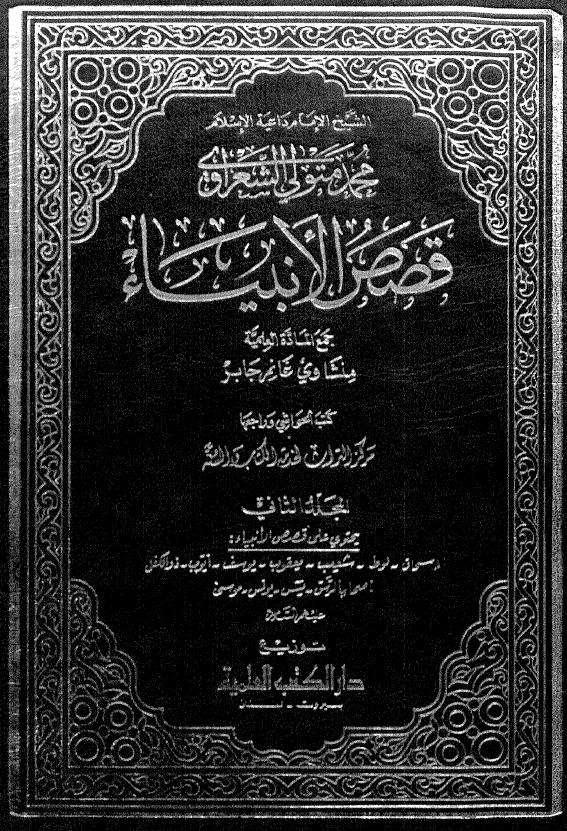 الشيخ الإمام داعية الإسلام
محمد متولي الشعراوي
قصص الأنبياء
جمع المادة العلمية
منشاوي غانم جابر
كتب الحواشي وراجعها
مركز التراث لخدمة الكتاب والسنة
المجلد الثاني
يحتوي على قصص الأنبياء:
إسحاق - لوط - شعيب - يعقوب - يوسف - أيوب - ذو الكفل
أصحاب الرس - يس - يونس - موسى
عليهم السلام
توزيع
دار الكتب العلمية
بيروت - لبنان